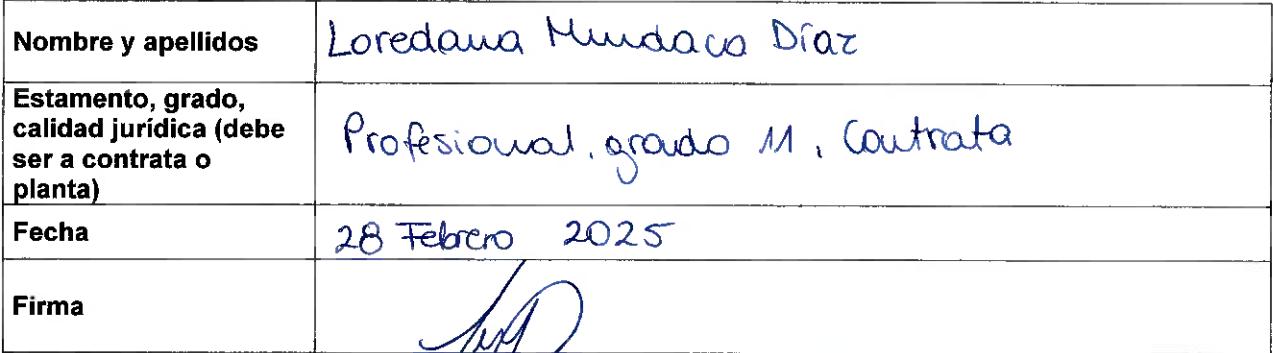 Nombre y apellidos
Loredana Mundaca Díaz
Estamento, grado,
calidad jurídica (debe
ser a contrata o
planta)
Profesional, grado 11, Contrata
Fecha
28 Febrero 2025
Firma